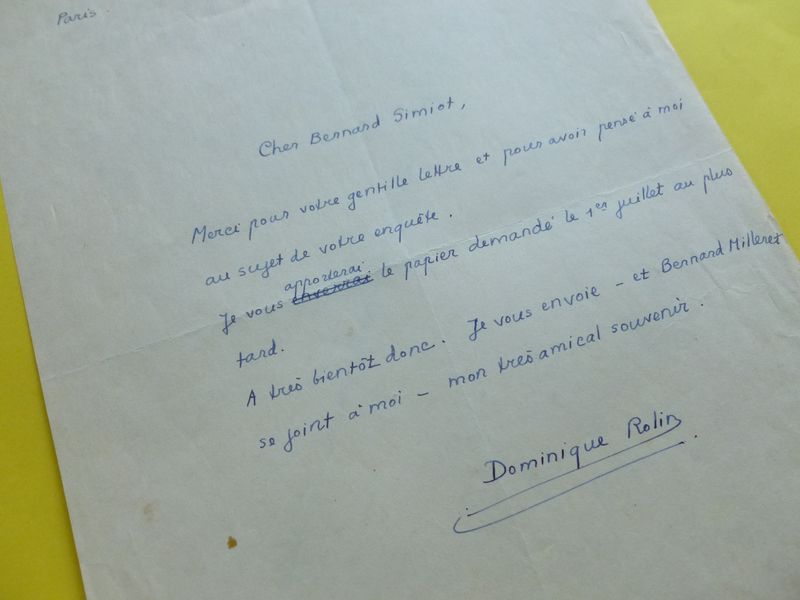 Paris
Cher Bernard Simiot,
Merci pour votre gentille lettre et pour avoir pensé à moi
au sujet de votre enquête.
apporterai
Je vous enverrai le papier demandé le 1er juillet au plus
tard.
A très bientôt donc. Je vous envoie – et Bernard Milleret
se joint à moi – mon très amical souvenir.
Dominique Rolin